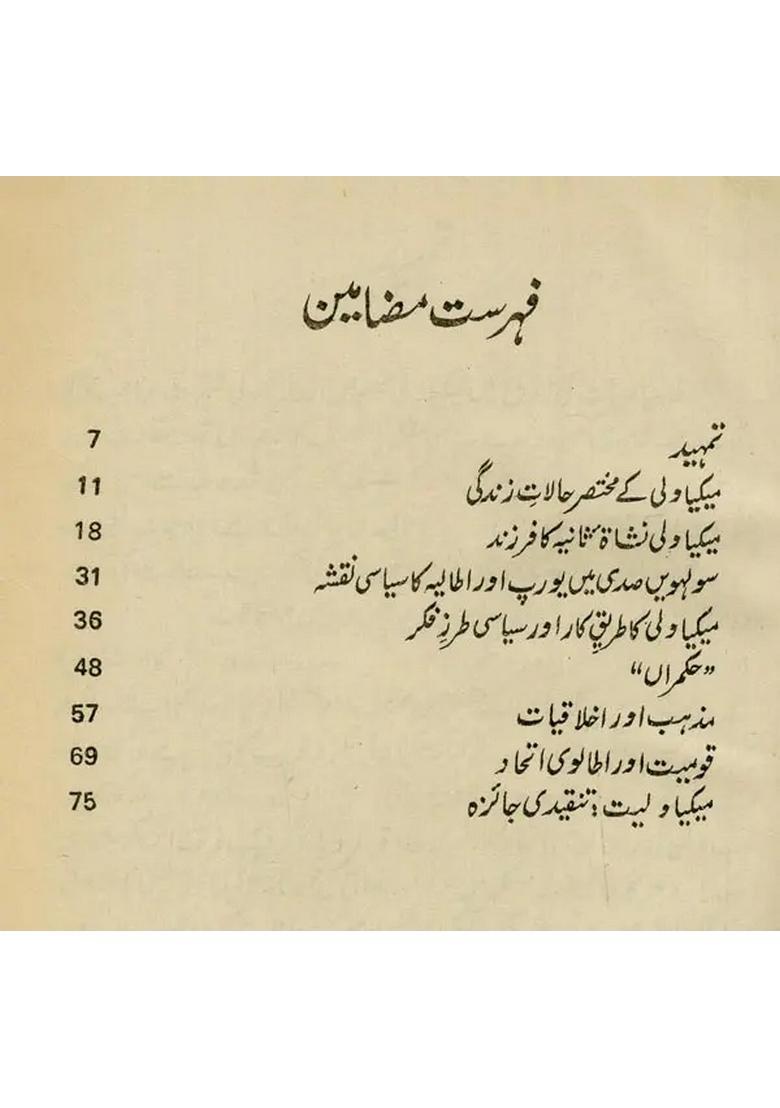 فہرست مضامین
تمہید 7
میکیاولی کے مختصر حالاتِ زندگی 11
میکیاولی نشاۃ ثانیہ کا فرزند 18
سولہویں صدی میں یورپ اور اطالیہ کا سیاسی نقشہ 31
میکیاولی کا طریقِ کار اور سیاسی طرزِ فکر 36
”حکمراں“ 48
مذہب اور اخلاقیات 57
قومیت اور اطالوی اتحاد 69
میکیاولیت: تنقیدی جائزہ 75